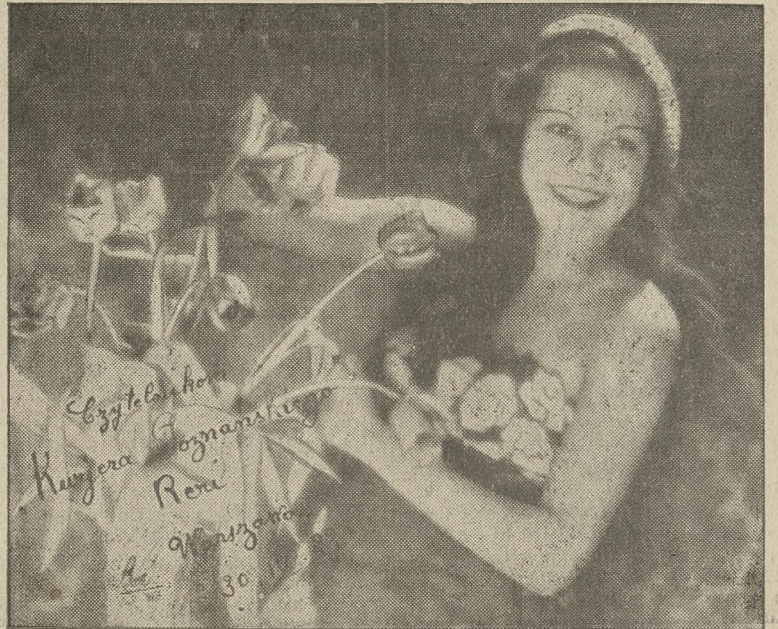 Czytelnikom
Kurjera Poznańskiego
Reri
Warszawa
30